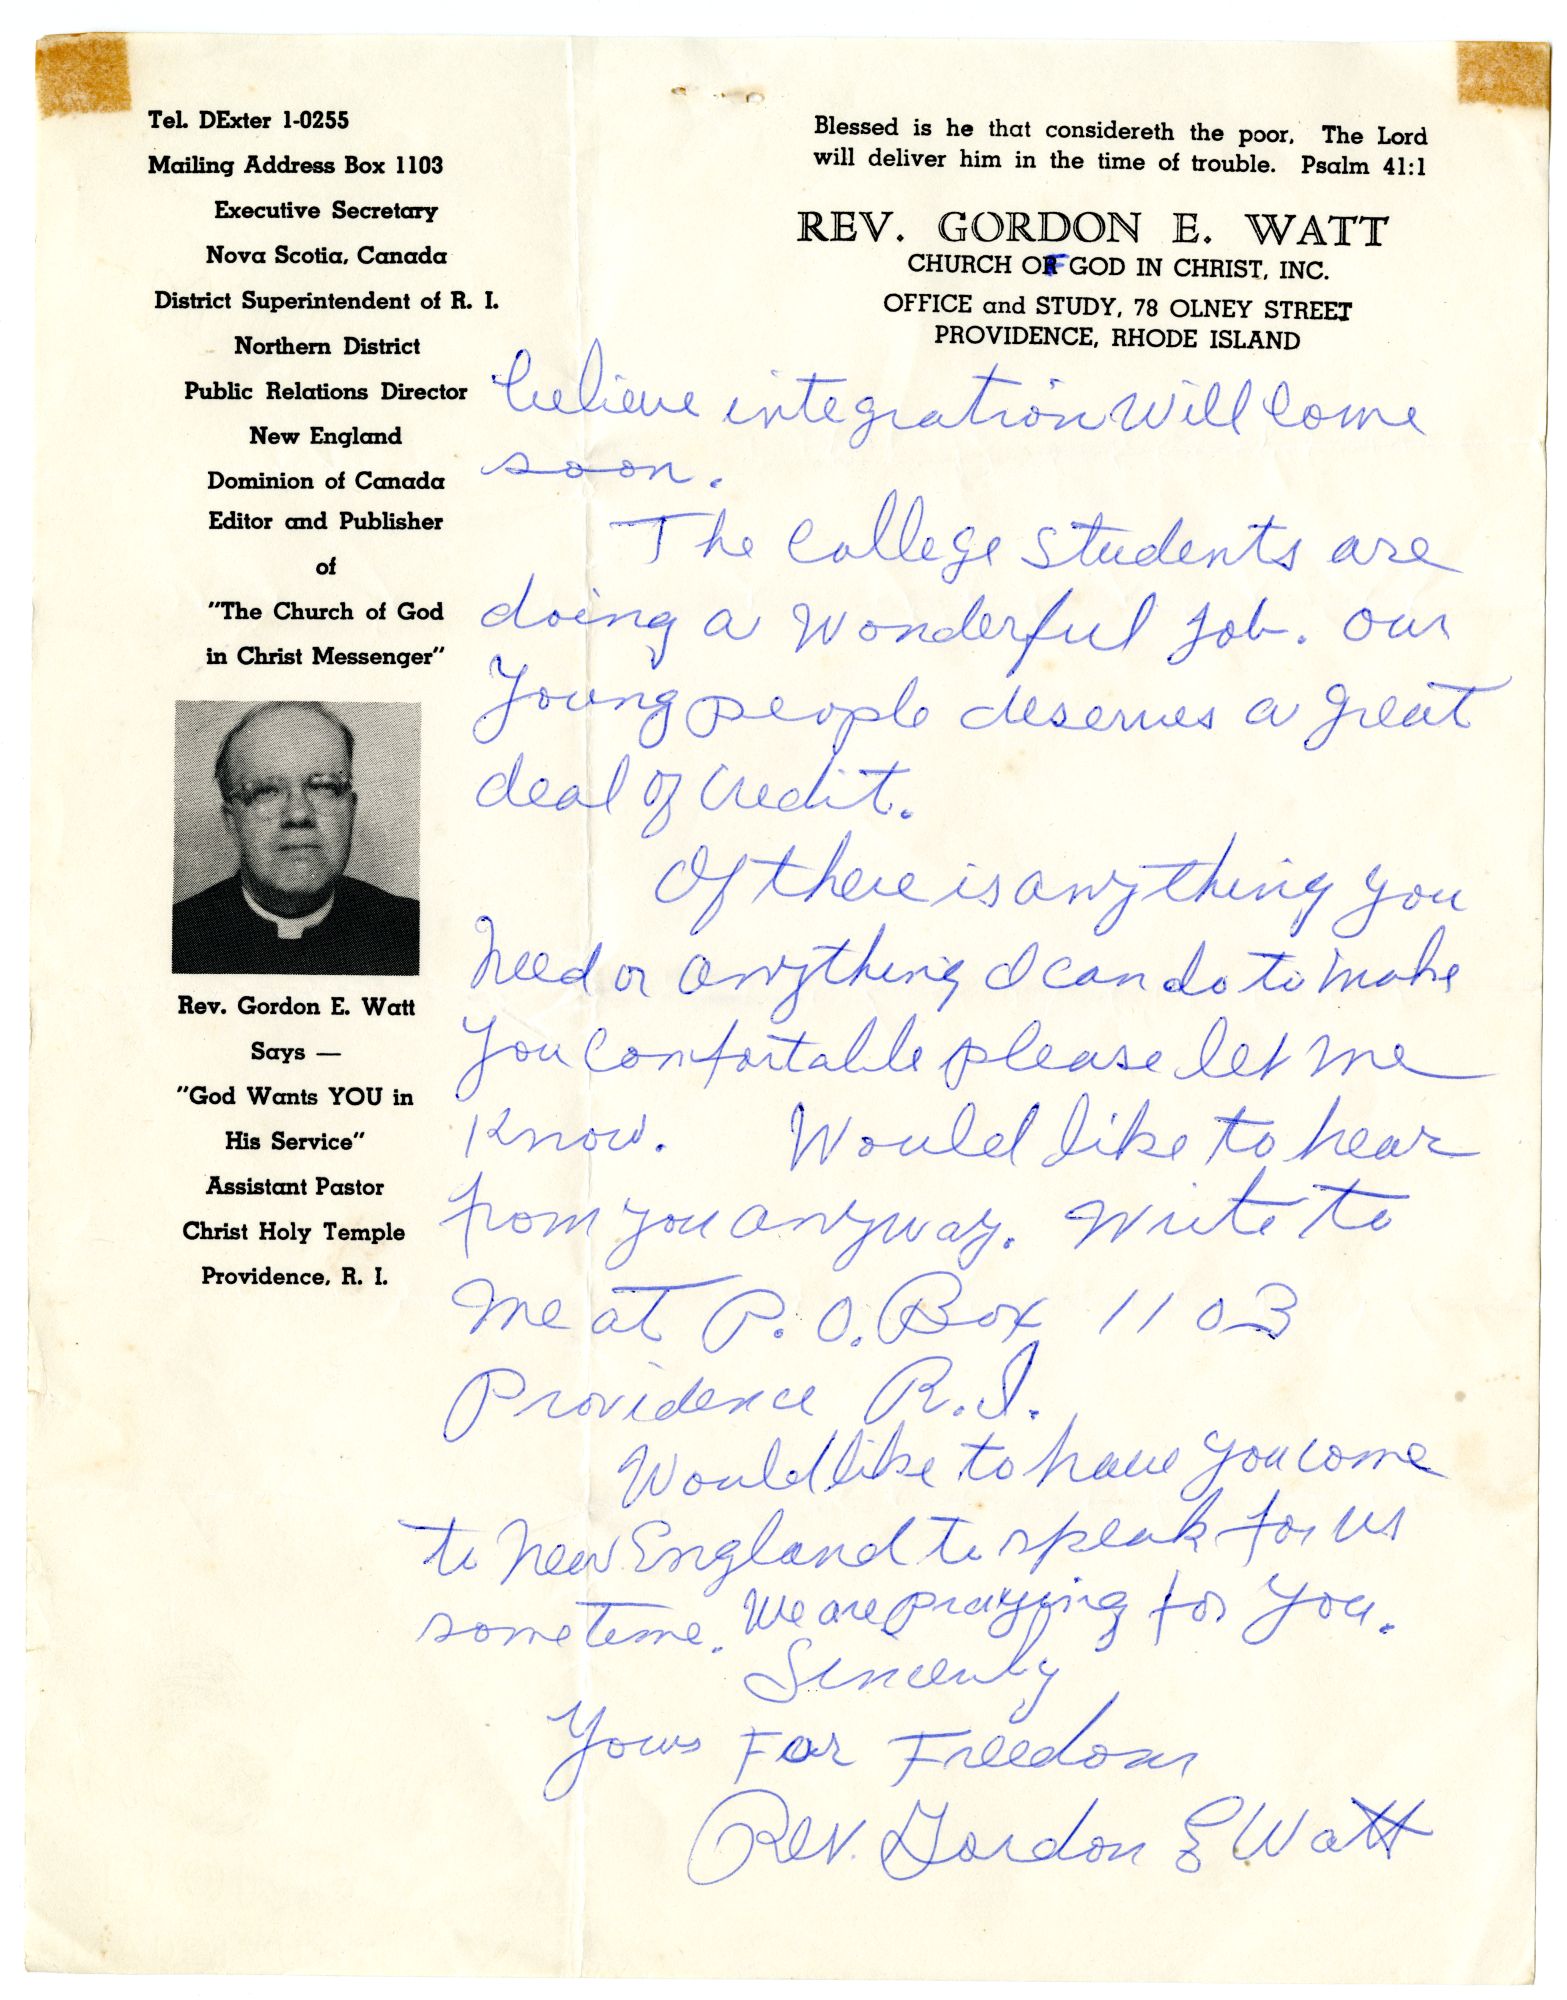 Tel. DExter 1-0255
Mailing Address Box 1103
Executive Secretary
Nova Scotia, Canada
District Superintendent of R. I.
Northern District
Public Relations Director
New England
Dominion of Canada
Editor and Publisher
of
"The Church of God
in Christ Messenger"
Rev. Gordon E. Watt
Says —
"God Wants YOU in
His Service"
Assistant Pastor
Christ Holy Temple
Providence, R. I.
Blessed is he that considereth the poor, The Lord
will deliver him in the time of trouble. Psalm 41:1
REV. GORDON E. WATT
CHURCH OF GOD IN CHRIST, INC.
OFFICE and STUDY, 78 OLNEY STREET
PROVIDENCE, RHODE ISLAND
believe integration will come
soon.
The College students are
doing a wonderful job. Our
Young people deserves a great
deal of credit.
If there is anything you
need or anything I can do to make
you comfortable please let me
know. Would like to hear
from you anyway. Write to
me at P. O. Box 1103
Providence R.I.
Would like to have you come
to New England to speak for us
sometime. We are praying for You.
Sincerely
Yours For Freedom
Rev. Gordon E Watt